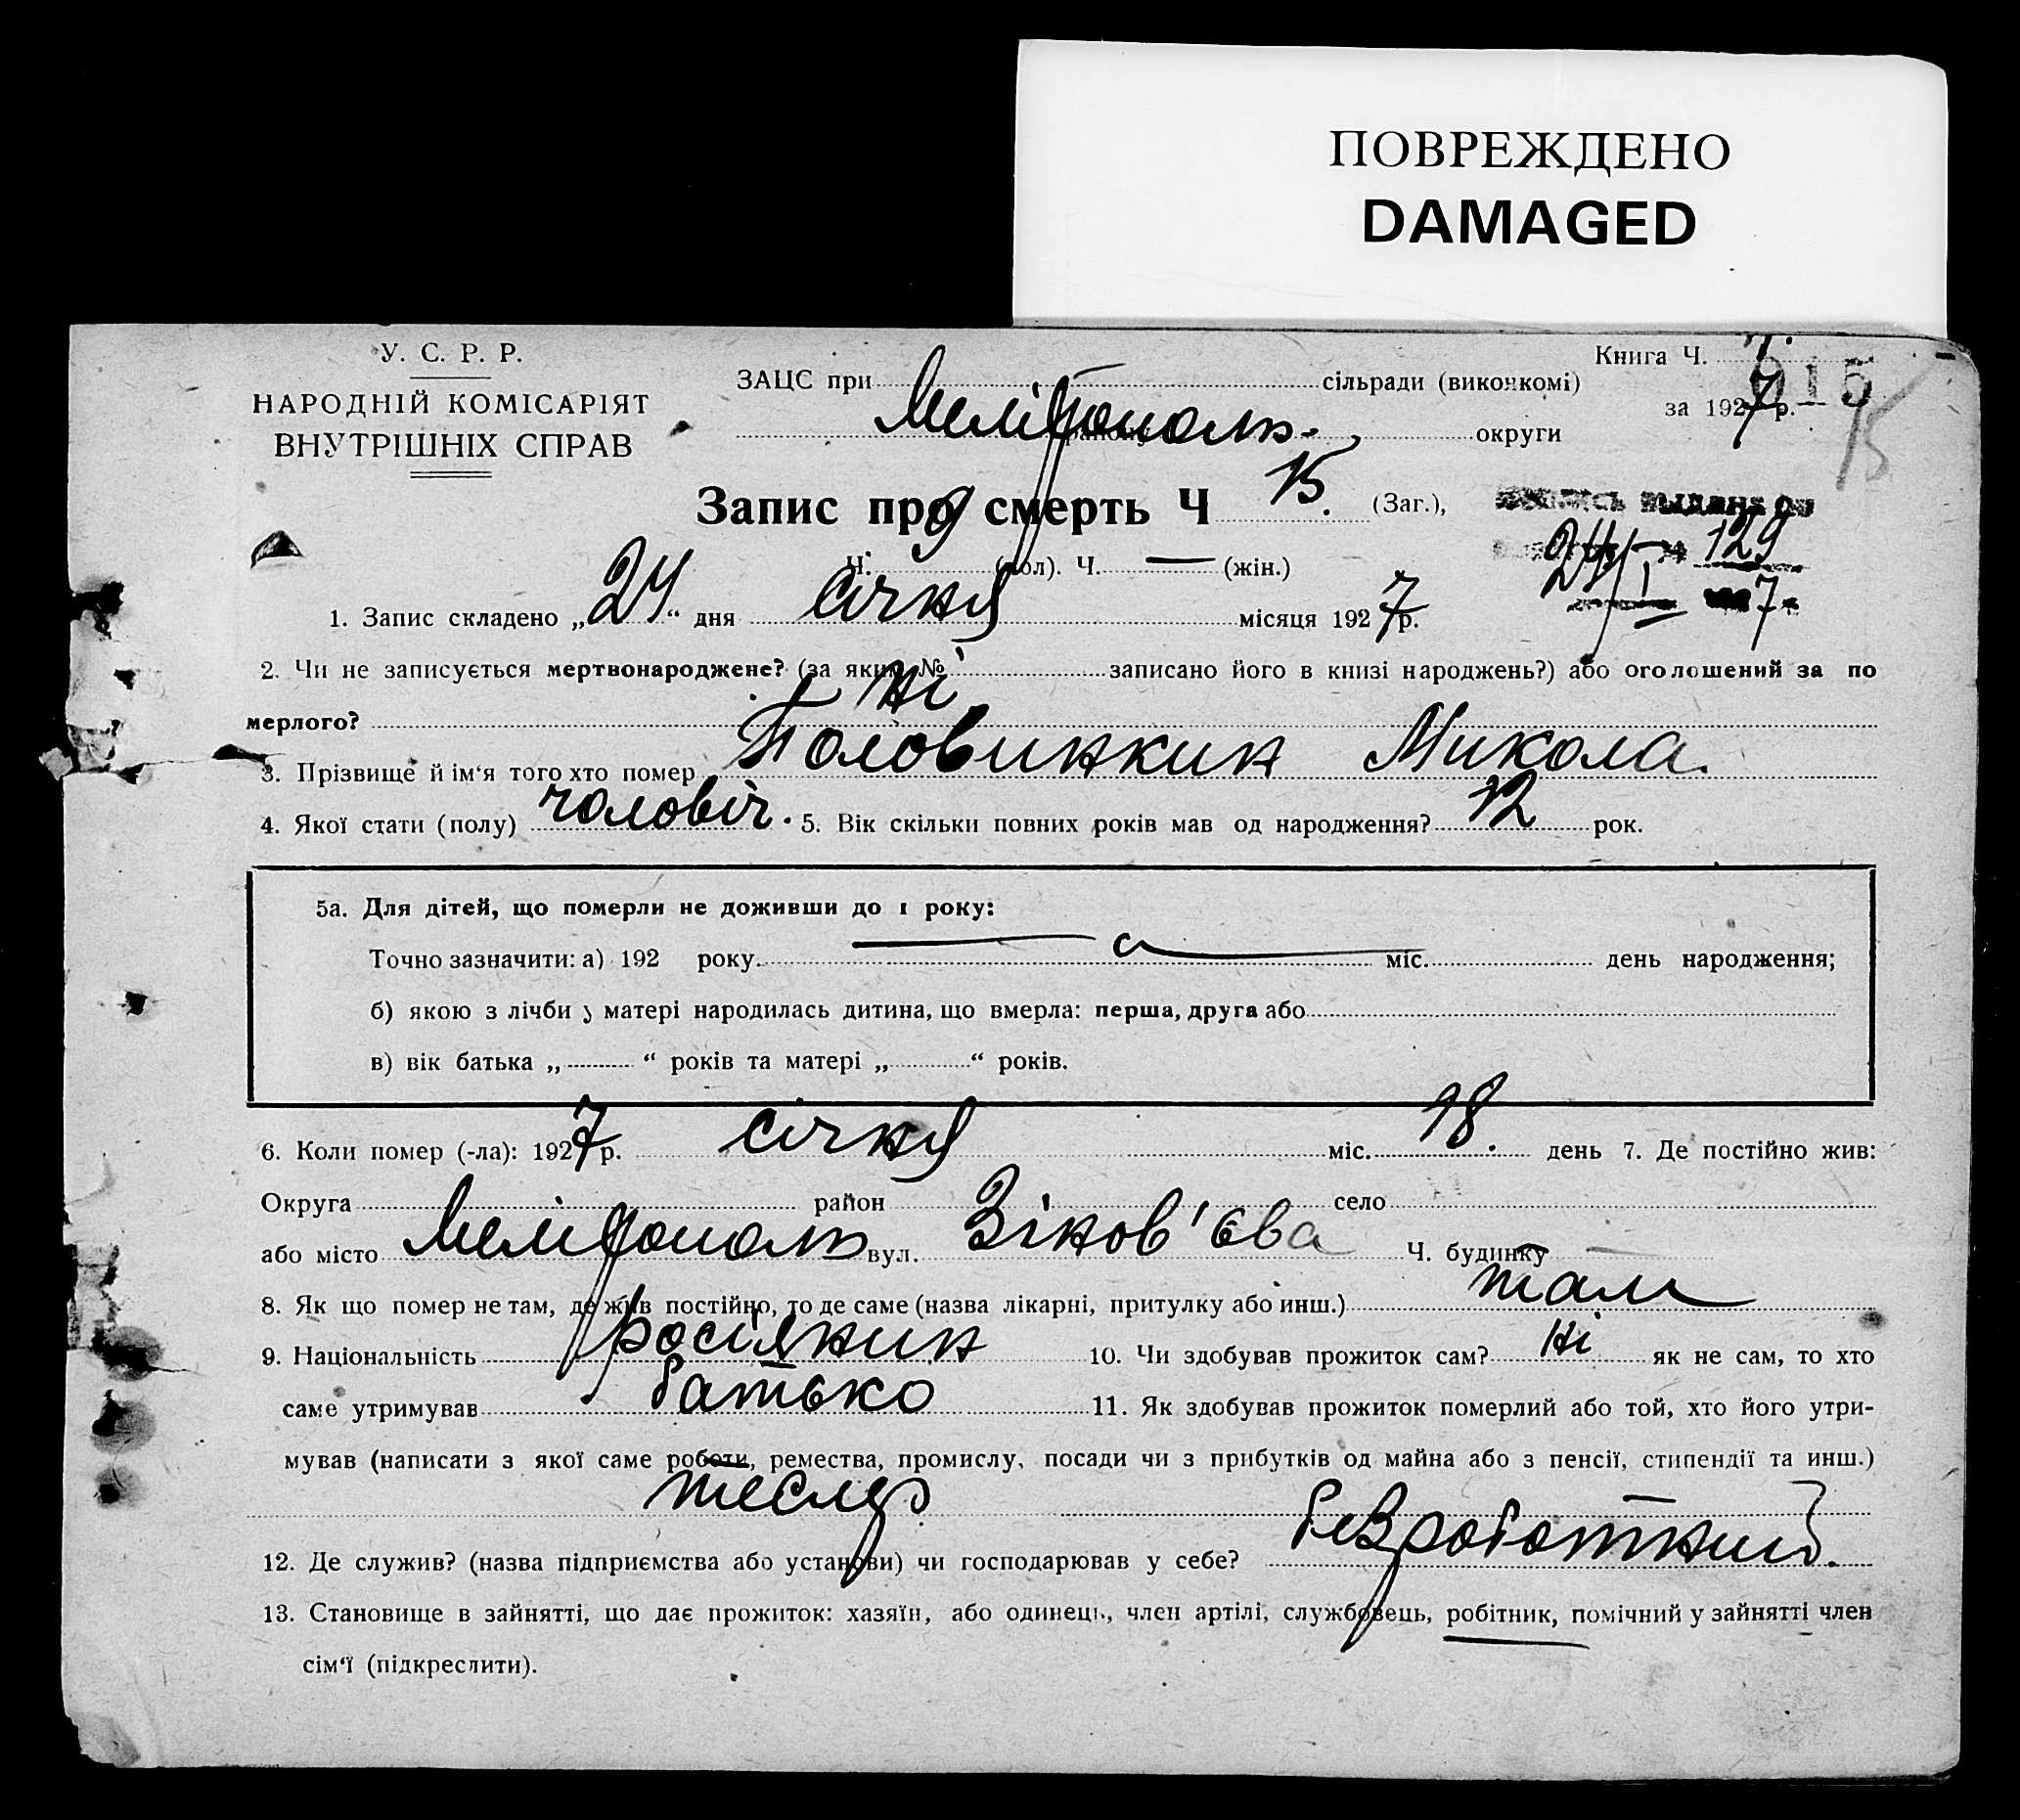 ПОВРЕЖДЕНО
DAMAGED
У. С. Р. Р.
НАРОДНІЙ КОМІСАРІЯТ
ВНУТРІШНІХ СПРАВ
ЗАЦС при сільради (виконкомі)
Мелітополь. району округи
Книга Ч. 1.
015
за 1927 р.
15
Запис про смерть Ч 15. (Заг.),
Ч. 9 (пол). Ч. — (жін.)
129
24/I 7
1. Запис складено „24“ дня січня місяця 1927 р.
2. Чи не записується мертвонароджене? (за яким № записано його в книзі народжень?) або оголошений за по
мерлого? ні
3. Прізвище й ім‘я того хто помер Половинкин Микола.
4. Якої стати (полу) чоловіч. 5. Вік скільки повних років мав од народження? 12 рок.
5а. Для дітей, що померли не доживши до 1 року:
Точно зазначити: а) 192 року. міс. день народження;
б) якою з лічби у матері народилась дитина, що вмерла: перша, друга або
в) вік батька „ “ років та матері „ “ років.
6. Коли помер (-ла): 1927 р. січня міс. 18. день 7. Де постійно жив:
Округа район село
або місто Мелітополь вул. Зінов'єва Ч. будинку —
8. Як що помер не там, де жив постійно, то де саме (назва лікарні, притулку або инш.) там
9. Національність росіянин 10. Чи здобував прожиток сам? ні як не сам, то хто
саме утримував батько 11. Як здобував прожиток померлий або той, хто його утри-
мував (написати з якої саме роботи, ремества, промислу, посади чи з прибутків од майна або з пенсії, стипендії та инш.)
тесляр
12. Де служив? (назва підприємства або установи) чи господарював у себе? безработний.
13. Становище в зайнятті, що дає прожиток: хазяїн, або одинець, член артілі, службовець, робітник, помічний у зайнятті член
сім‘ї (підкреслити).